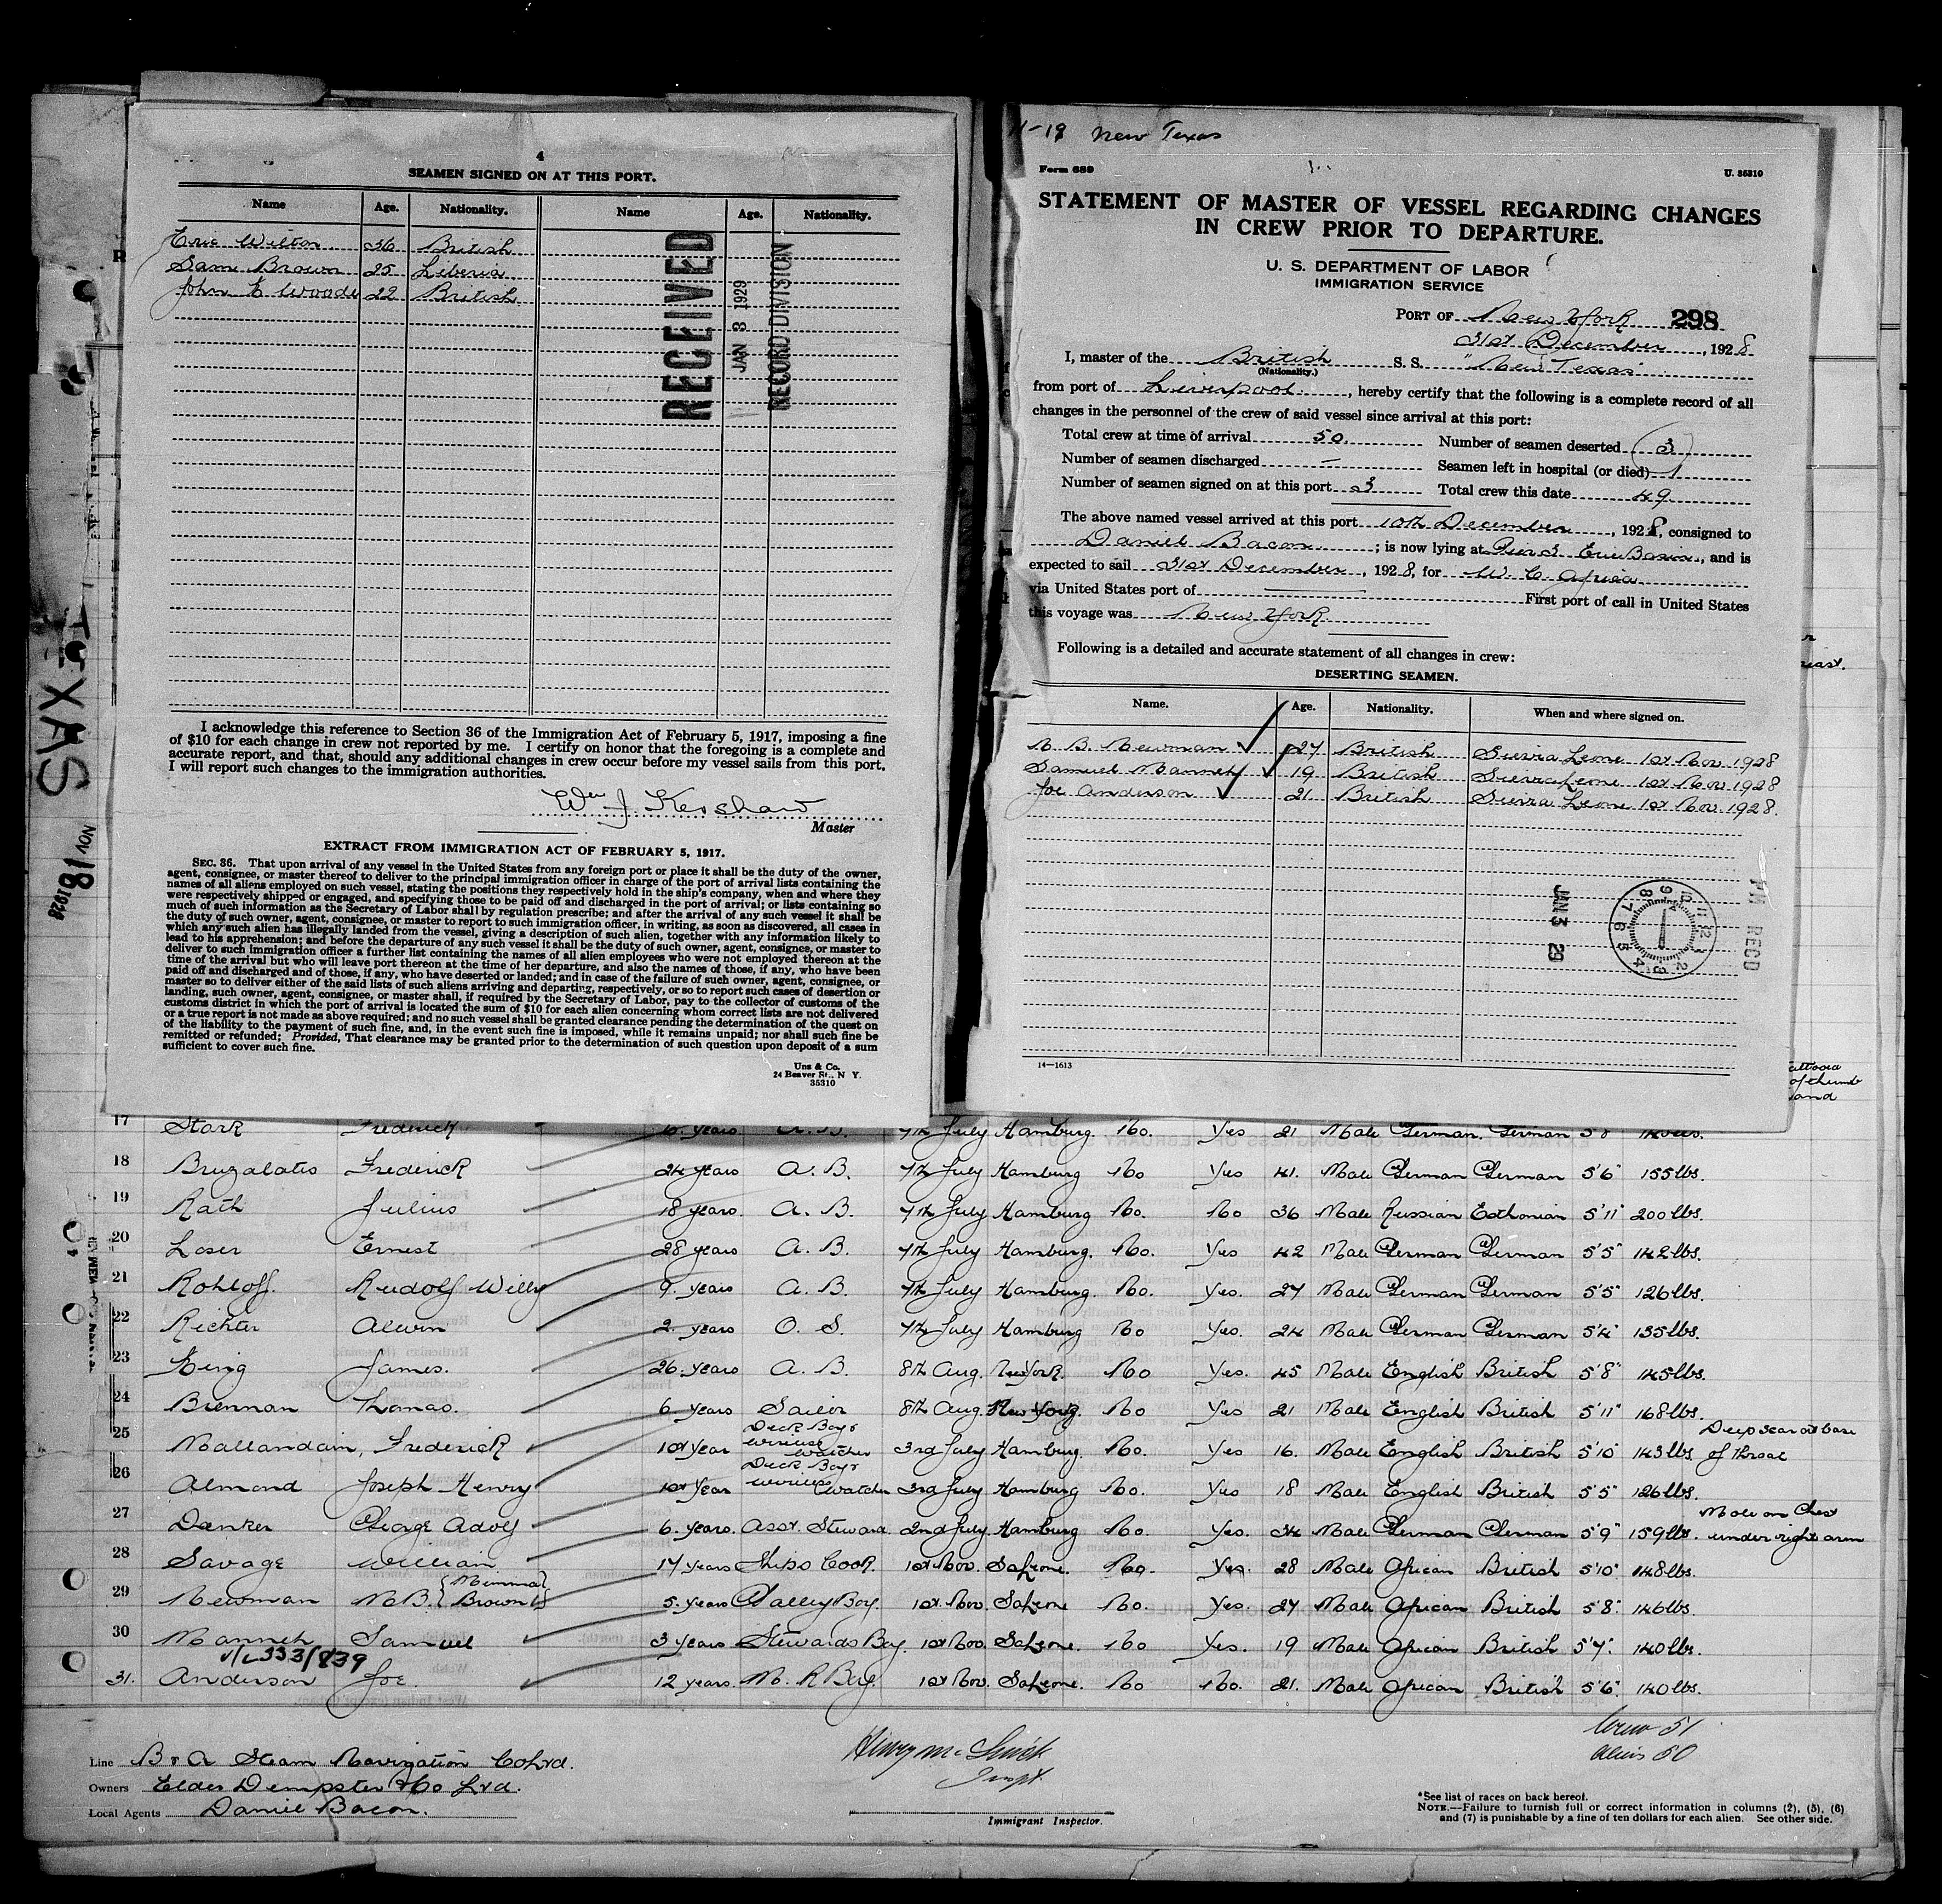 4
SEAMEN SIGNED ON AT THIS PORT.
Name Age. Nationality. Name Age. Nationality.
Eric Wilton 36 British
Sam Brown 25 Liberia
John E Woode 22 British
RECEIVED
JAN 3 1929
RECORD DIVISION
I acknowledge this reference to Section 36 of the Immigration Act of February 5, 1917, imposing a fine
of $10 for each change in crew not reported by me. I certify on honor that the foregoing is a complete and
accurate report, and that, should any additional changes in crew occur before my vessel sails from this port,
I will report such changes to the immigration authorities.
Wm J. Kershaw
Master
EXTRACT FROM IMMIGRATION ACT OF FEBRUARY 5, 1917.
SEC. 36. That upon arrival of any vessel in the United States from any foreign port or place it shall be the duty of the owner,
agent, consignee, or master thereof to deliver to the principal immigration officer in charge of the port of arrival lists containing the
names of all aliens employed on such vessel, stating the positions they respectively hold in the ship's company, when and where they
were respectively shipped or engaged, and specifying those to be paid off and discharged in the port of arrival; or lists containing so
much of such information as the Secretary of Labor shall by regulation prescribe; and after the arrival of any such vessel it shall be
the duty of such owner, agent, consignee, or master to report to such immigration officer, in writing, as soon as discovered, all cases in
which any such alien has illegally landed from the vessel, giving a description of such alien, together with any information likely to
lead to his apprehension; and before the departure of any such vessel it shall be the duty of such owner, agent, consignee, or master to
deliver to such immigration officer a further list containing the names of all alien employees who were not employed thereon at the
time of the arrival but who will leave port thereon at the time of her departure, and also the names of those, if any, who have been
paid off and discharged and of those, if any, who have deserted or landed; and in case of the failure of such owner, agent, consignee, or
master so to deliver either of the said lists of such aliens arriving and departing, respectively, or so to report such cases of desertion or
landing, such owner, agent, consignee, or master shall, if required by the Secretary of Labor, pay to the collector of customs of the
customs district in which the port of arrival is located the sum of $10 for each alien concerning whom correct lists are not delivered
or a true report is not made as above required; and no such vessel shall be granted clearance pending the determination of the quest on
of the liability to the payment of such fine, and, in the event such fine is imposed, while it remains unpaid; nor shall such fine be
remitted or refunded; Provided, That clearance may be granted prior to the determination of such question upon deposit of a sum
sufficient to cover such fine.
Unz & Co.
24 Beaver St., N Y.
35310
TEXAS
NOV 18 1928
New Texas
Form 689
U. 35310
STATEMENT OF MASTER OF VESSEL REGARDING CHANGES
IN CREW PRIOR TO DEPARTURE.
U. S. DEPARTMENT OF LABOR
IMMIGRATION SERVICE
PORT OF New York 298
31st December, 1928
I, master of the British S. S. "New Texas"
(Nationality.)
from port of Liverpool, hereby certify that the following is a complete record of all
changes in the personnel of the crew of said vessel since arrival at this port:
Total crew at time of arrival 50. Number of seamen deserted 3
Number of seamen discharged — Seamen left in hospital (or died) 1
Number of seamen signed on at this port 3 Total crew this date 49
The above named vessel arrived at this port 10th December, 1928, consigned to
Daniel Bacon; is now lying at Pier 3 Erie Basin, and is
expected to sail 31st December, 1928, for W. C. Africa
via United States port of First port of call in United States
this voyage was New York
Following is a detailed and accurate statement of all changes in crew:
DESERTING SEAMEN.
Name. Age. Nationality. When and where signed on.
N. B. Newman 27 British Sierra Leone 1st Nov 1928
Samuel Manneh 19 British Sierra Leone 1st Nov. 1928
Joe Anderson 21 British Sierra Leone 1st Nov. 1928.
JAN 3 29
PM RECD
14—1613
17 Stark Frederick years. A. B. 7th July Hamburg. No. Yes 21 Male German. German 5'8"
18 Brugalatis Frederick 24 years A. B. 7th July Hamburg No Yes 41. Male German German 5'6" 155 lbs.
19 Rath Julius 18 years. A. B. 7th July Hamburg No. No 36 Male Russian Esthonian 5'11" 200 lbs.
20 Loser Ernest 28 years A. B. 7th July Hamburg. No. Yes 42 Male German German 5'5" 142 lbs.
21 Rohloff. Rudolf Willy 9. years A. B. 7th July Hamburg. No. Yes. 27 Male German German 5'5" 126 lbs.
22 Richter Alwin 2. years O. S. 7th July Hamburg No Yes. 24 Male German German 5'4" 135 lbs.
23 King James. 26. years A. B. 8th Aug. New York. No Yes. 45 Male English British 5'8" 145 lbs.
24 Brennan Thomas. 6 years Sailor 8th Aug. New York. No Yes 21 Male English British 5'11" 168 lbs.
25 Mallandain, Frederick 1st Year Deck Boy & wireless watcher 3rd July Hamburg No. Yes 16. Male English British 5'10" 143 lbs. Deep scar at base of throat
26 Almond Joseph Henry 1st Year Deck Boy & wireless watcher 3rd July Hamburg No. Yes 18 Male English British 5'5" 126 lbs.
27 Danker George Adolf 6. years. Asst. Steward. 2nd July. Hamburg No. Yes. 34 Male German German 5'9" 159 lbs. Mole on Chest under right arm
28 Savage William 17 years Ships Cook. 1st Nov. Saleone. No. Yes. 28 Male African British 5'10" 148 lbs.
29 Newman N.B. {Mimma Brown} 5. years Galley Boy. 1st Nov. Saleone No. Yes. 27 Male African British 5'8" 146 lbs.
30 Manneh Samuel 3 years Stewards Boy 1st Nov. Saleone. No Yes. 19 Male African British 5'7" 140 lbs.
333/839
31. Anderson Joe. 12 years. M. R Boy. 1st Nov. Saleone. No No. 21. Male African British 5'6" 140 lbs.
Crew 51
Aliens 50
Line B & A Steam Navigation Co Ltd.
Owners Elder Dempster & Co Ltd.
Local Agents Daniel Bacon.
Immigrant Inspector.
*See list of races on back hereof.
NOTE.—Failure to furnish full or correct information in columns (2), (5), (6)
and (7) is punishable by a fine of ten dollars for each alien. See other side.